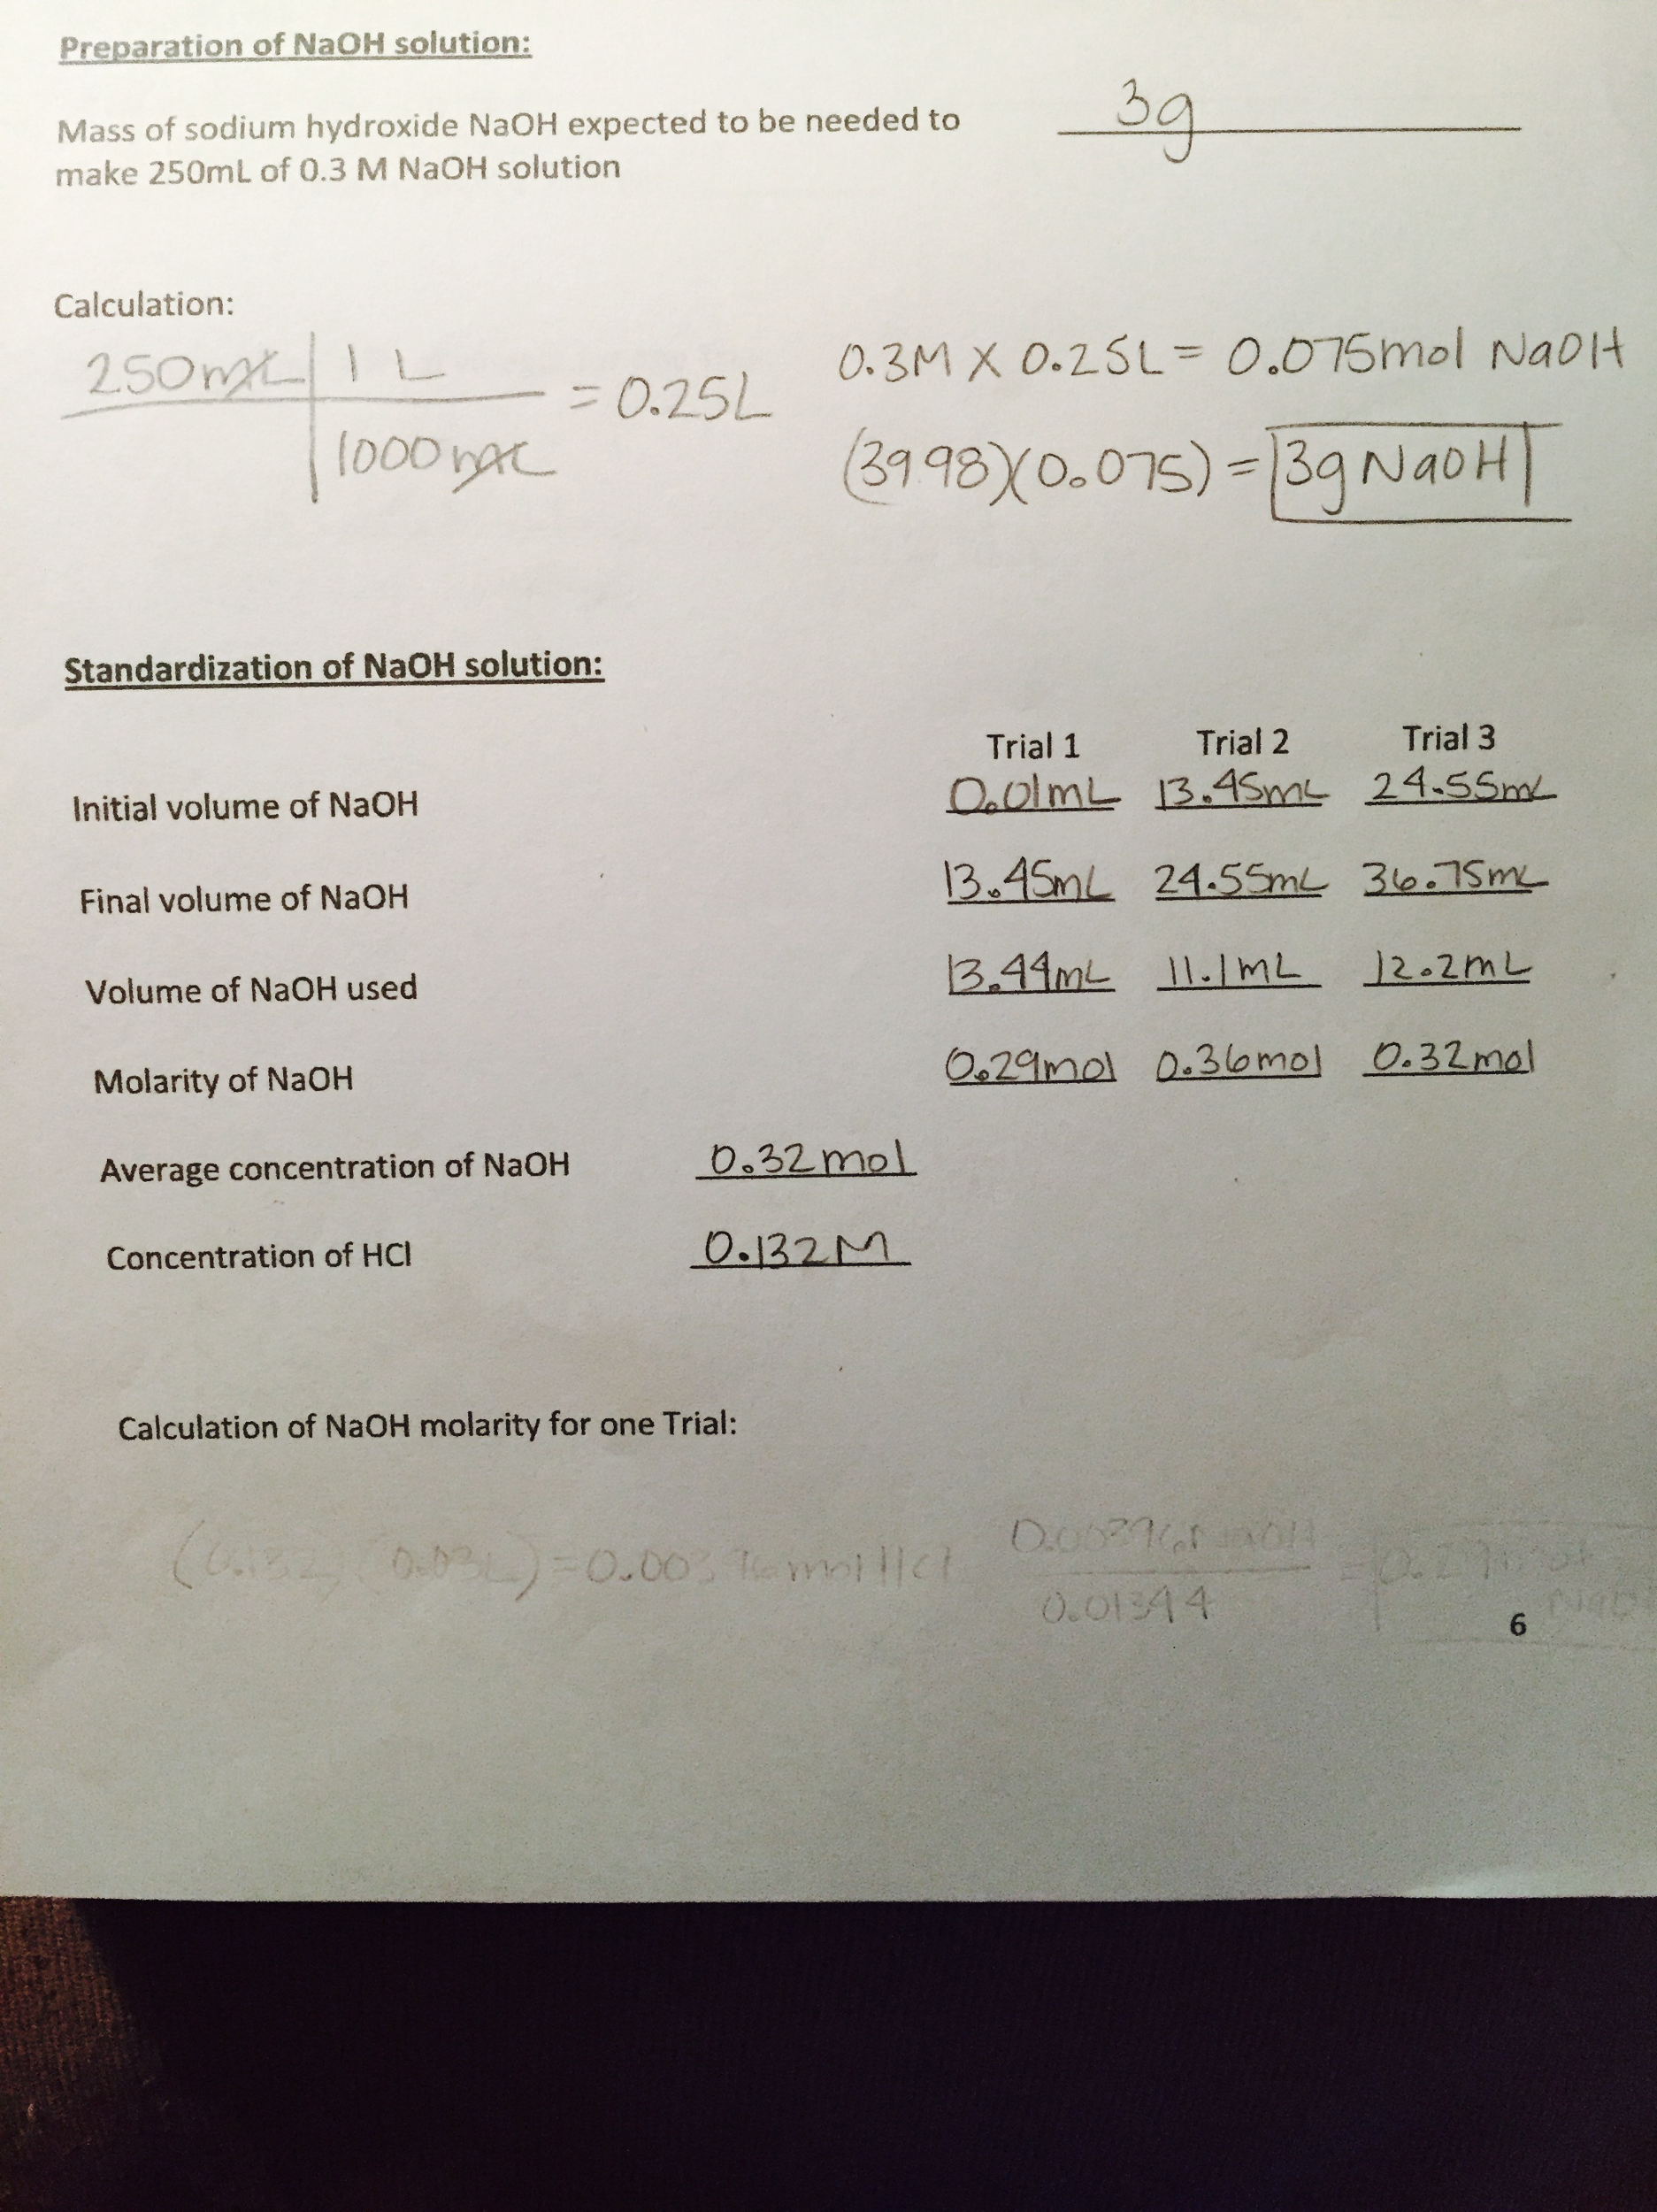 Preparation of NaOH solution:
Mass of sodium hydroxide NaOH expected to be needed to 3g
make 250mL of 0.3 M NaOH solution
Calculation:
250mL 1 L = 0.25L 0.3M X 0.25L = 0.075mol NaOH
1000mL (39.98)(0.075) = 3g NaOH
Standardization of NaOH solution:
Trial 1 Trial 2 Trial 3
Initial volume of NaOH 0.01mL 13.45mL 24.55mL
Final volume of NaOH 13.45mL 24.55mL 36.75mL
Volume of NaOH used 13.44mL 11.1mL 12.2mL
Molarity of NaOH 0.29mol 0.36mol 0.32mol
Average concentration of NaOH 0.32mol
Concentration of HCl 0.132M
Calculation of NaOH molarity for one Trial:
(0.132)(0.03L) = 0.00396mol HCl 0.00396 NaOH =
0.01344
6